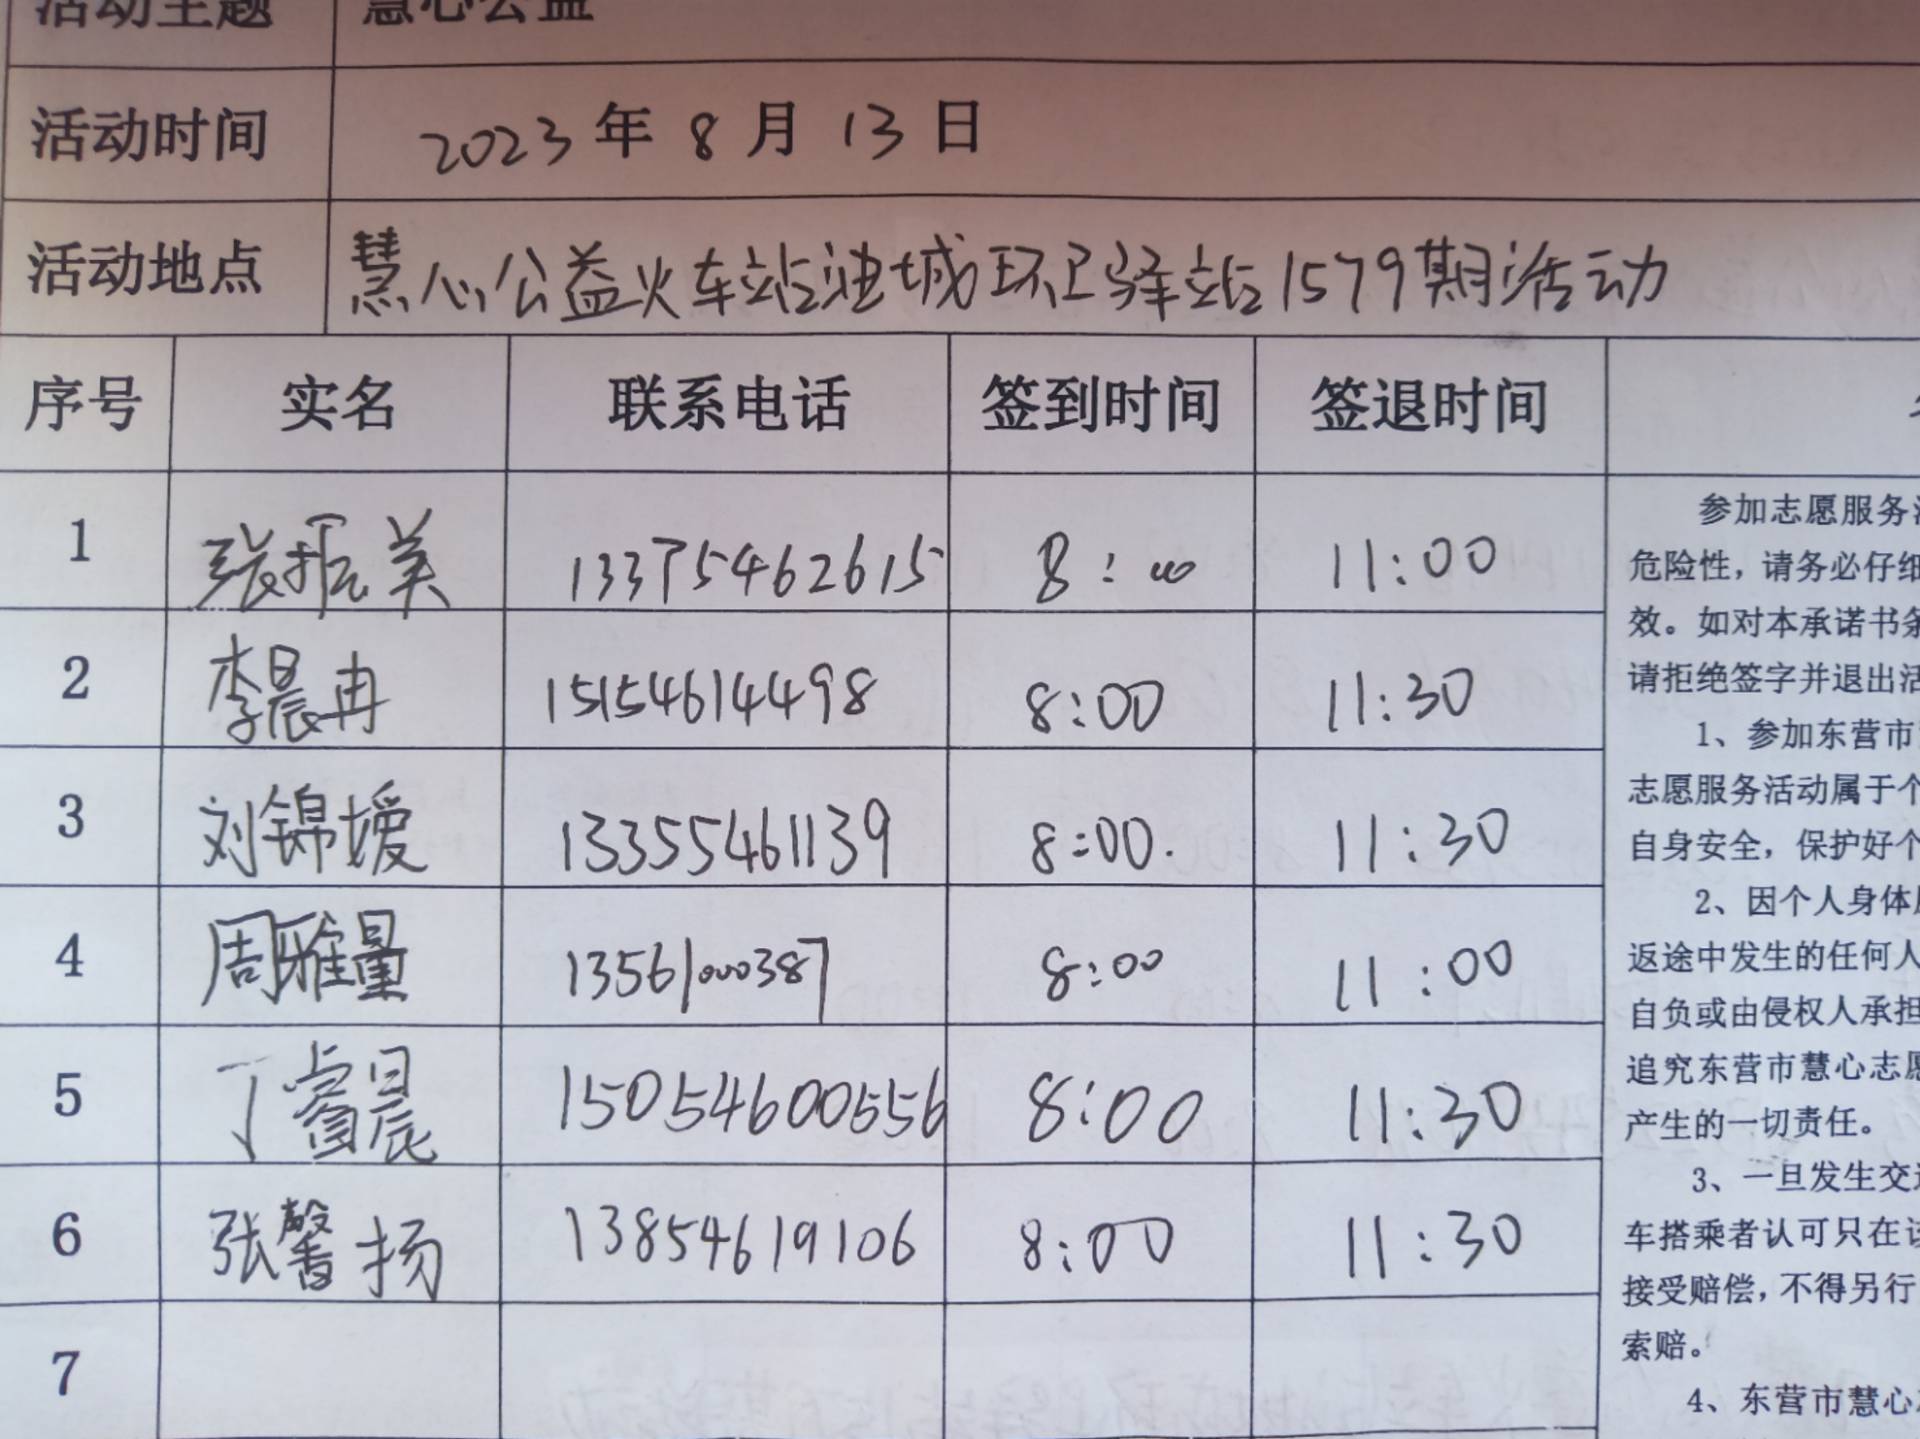 活动主题 慧心公益
活动时间 2023年8月13日
活动地点 慧心公益火车站油城环卫驿站1579期活动
序号 实名 联系电话 签到时间 签退时间
1 张振美 13375462615 8:00 11:00
2 李晨冉 15154614498 8:00 11:30
3 刘锦嫒 13355461139 8:00. 11:30
4 周雅量 13561000387 8:00 11:00
5 丁睿晨 15054600556 8:00 11:30
6 张馨扬 13854619106 8:00 11:30
7
参加志愿服务
危险性，请务必仔细
效。如对本承诺书条
请拒绝签字并退出活
1、参加东营市
志愿服务活动属于个
自身安全，保护好个
2、因个人身体
返途中发生的任何人
自负或由侵权人承担
追究东营市慧心志愿
产生的一切责任。
3、一旦发生交通
车搭乘者认可只在该
接受赔偿，不得另行
索赔。
4、东营市慧心